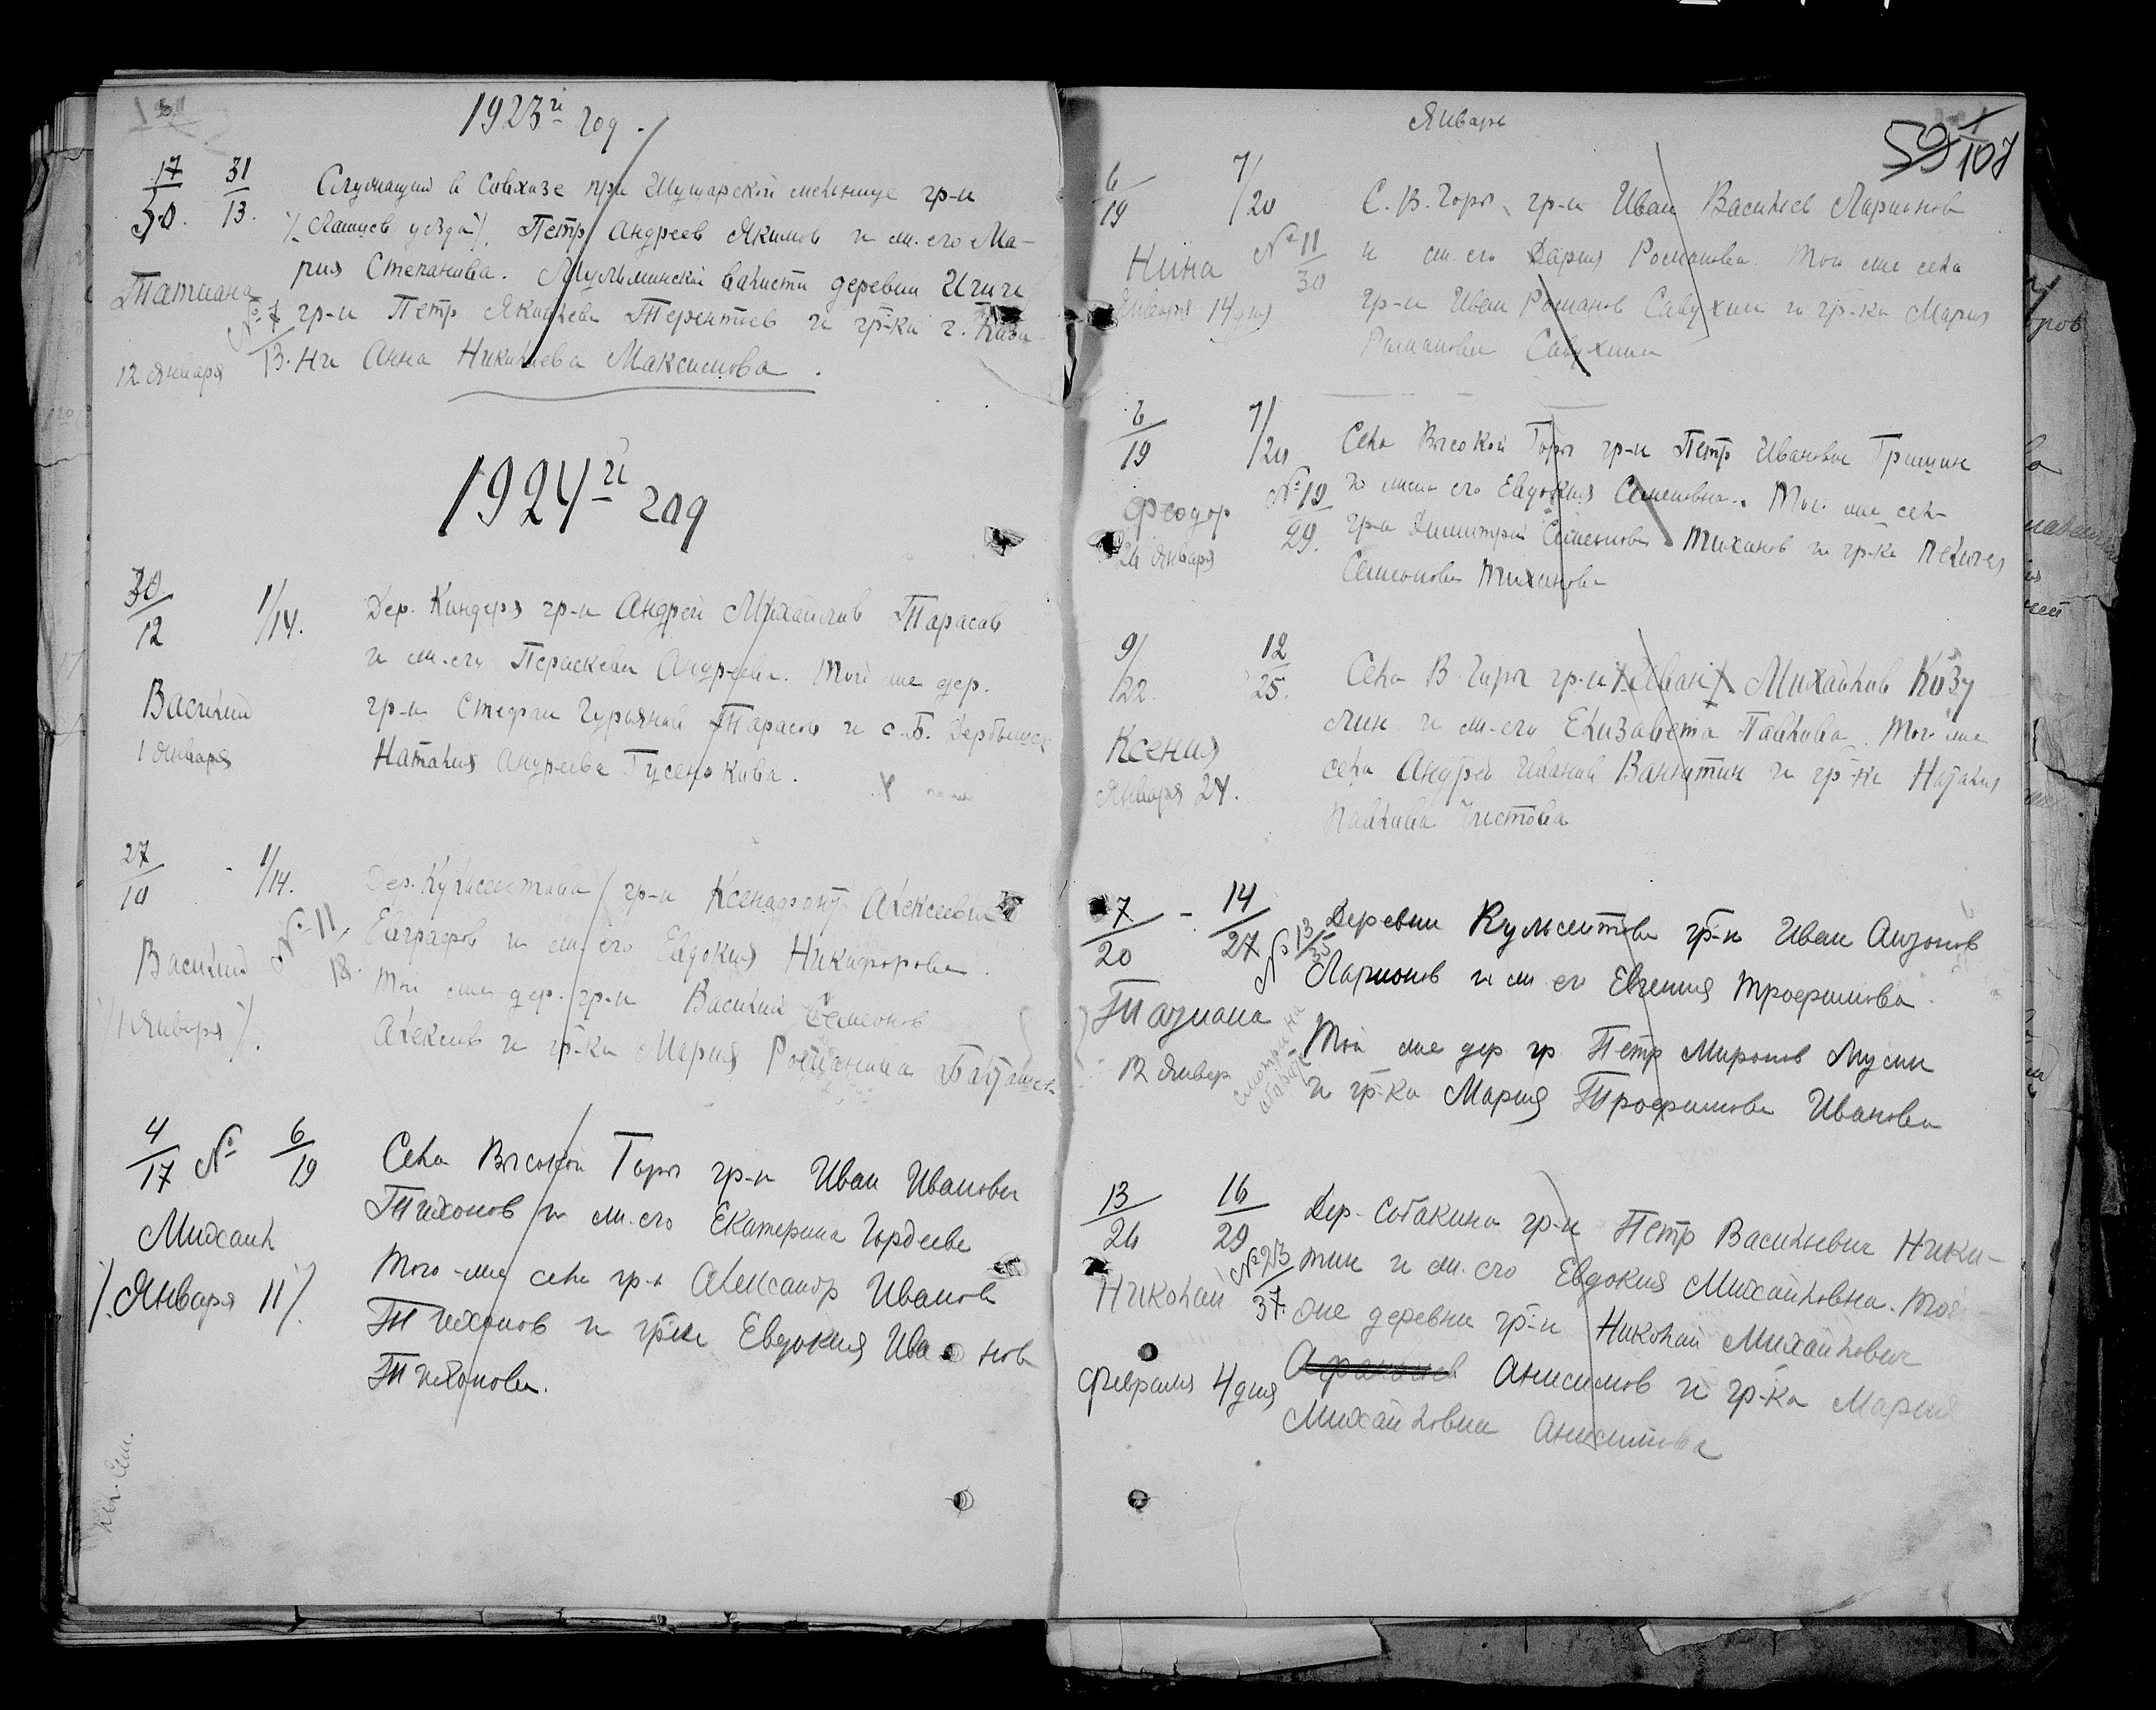 1923й год.
17/30 31/13. Служащий в Совхозе при Шушарской мельнице гр-н
/. Лаишев. уезда /. Петр Андреев Якимов и ж. его Ма-
рия Степанова. Мульминской волости деревни Игиги
Татиана № 7/13. гр-н Петр Яковлев Терентьев и гр-ка г. Каза-
12 января ни Анна Николаева Максимова.
1924й год
30/12 1/14. Дер. Киндеря гр-н Андрей Михайлов Тарасов
и ж. его Параскева Андреева. Той же дер.
Василий гр-н Стефан Гурьянов Тарасов и с. Б. Дербышк
1 января Наталия Андреева
27/10 - 1/14. Дер. гр-н Ксенофонт Алексеевич
Евграфов и ж. его Евдокия Никифорова.
Василий № 11/18. Той же дер. гр-н Василий Семенов
/1 января/. Алексеев и гр-ка Мария Романова
4/17 № 6/19 Села Высокой Горы гр-н Иван Иванович
Тихонов и ж. его Екатерина Гордеева
Михаил Того-же села гр-н Александр Иванов
/. Января 11/. Тихонов и гр-ка Евдокия Ива нов
Тихонова.
Январь
59 107
6/19 7/20 С. В. Горы гр-н Иван Васильев Ларионов
Нина № 11/30 и ж. его Дария Романова. Того же села
Января 14 дня гр-н Иван Романов Савухин и гр-ка Мария
Романова Савухина
6/19 7/20 Села Высокой Горы гр-н Петр Иванович Гришин
Феодор № 12/29. и жена его Евдокия Семеновна. Того же села
января гр-н Димитрий Семенович Тиханов и гр-ка Пелагея
Семенова Тиханова
9/22. 12/25. Села В. Горы гр-н Иван Михайлов Козу-
лин и ж. его Елизавета Павлова. Того же
Ксения села Андрей Иванов и гр-ка Наталия
Января 24. Павлова Чистова
7/20 - 14/27 № 13/35 Деревни Кульсеитова гр-н Иван Антонов
Ларионов и ж его Евгения Трофимова.
Татиана Той же дер гр Петр Миронов Мусин
12 январ смотри на обороте и гр-ка Мария Трофимова Иванова
13/26 16/29 Дер. Собакина гр-н Петр Васильевич Ники-
Николай № 23/37. тин и ж. его Евдокия Михайловна. Той
же деревни гр-н Николай Михайлович
Февраля 4 дня Анисимов и гр-ка Мария
Михайловна Анисимова